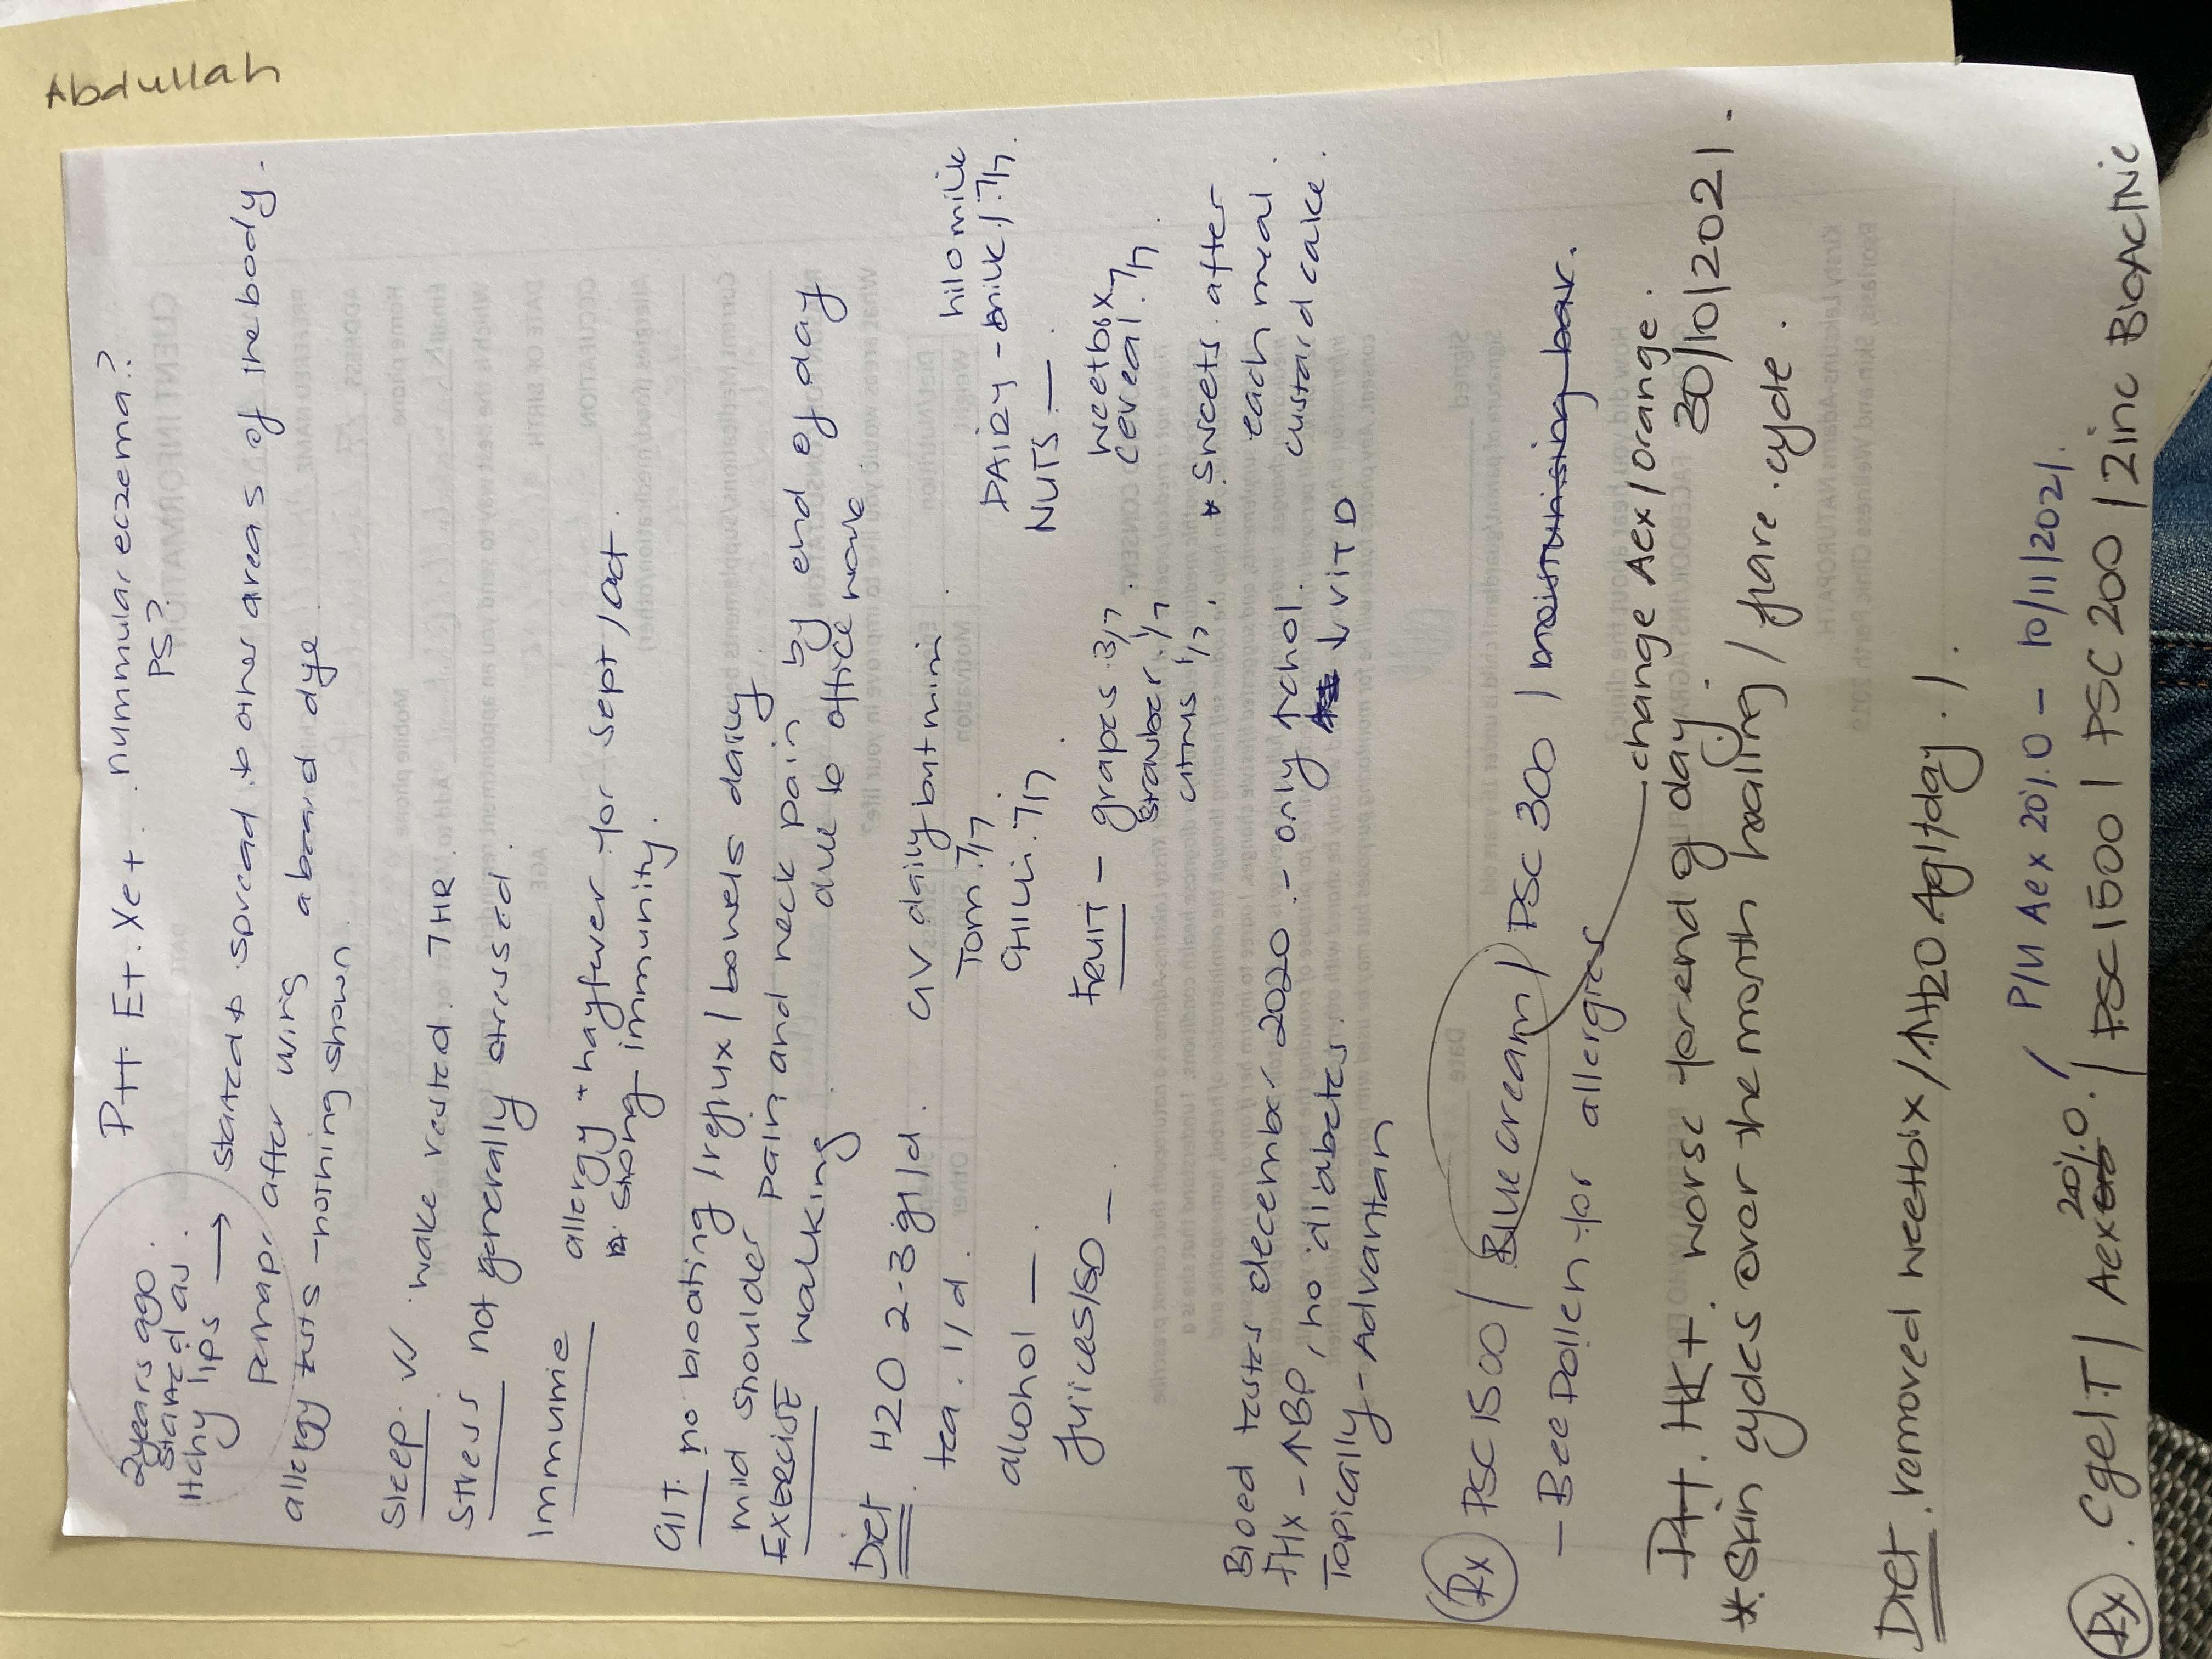 Abdullah
Ptt. E+. Xe+. nummular eczema?
PS?
2years ago.
started as
Itchy lips → started & spread to other areas of the body.
Perhaps after using a beard dye
allergy tests - nothing shown.
Sleep. wake rested. 7HR.
Stress not generally stressed.
Immune allergy + hayfever for sept/oct.
strong immunity.
GIT. no bloating/reflux/bowels daily.
mild shoulder pain and neck pain by end of day
EXERCISE walking. due to office work
Diet. H2O 2-3gl/d. GV daily but mini.
tea. 1/d. Tom. 7/7
CHILLI. 7/7.
alcohol —.
Juices/SD —
DAIRY - milk 1.7/7. hilo milk
NUTS. —
FRUIT - grapes. 3/7.
strawber 1/7
citrus 1/7.
weetbix
cereal. 7/7.
* sweets. after
each meal.
custard cake.
Blood tests december 2020 - only ↑chol.
↓ VIT D
FHx - ↑BP, no diabetes.
Topically - Advantan
Rx PSC 1500 / Blue cream / PSC 300 / moisturising bar.
- Bee Pollen for allergies
change Aex / orange.
Ptt. HK+. worse for end of day. 30/10/2021.
* Skin cycles over the month healing / flare. cycle.
Diet. removed weetbix / ↑H2O Agl/day. /
P/U Aex 20%.O - 10/11/2021.
Rx. CgelT / Aex 20%.O. / PSC 1500 / PSC 200 / Zinc BioActive